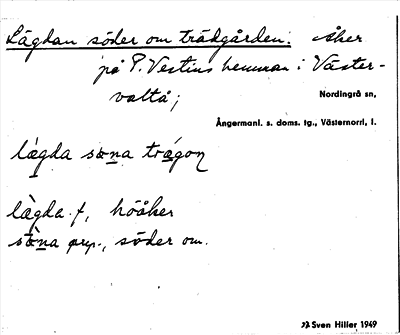 Lägdan söder om trädgården: Åker
på P. Vestins hemman i Väster-
valtå;
Nordingrå sn,
Ångermanl. s. doms. tg., Västernorrl. l.
làgda sɷna trágoɳ
làgda f, hööåker
sɷna prp., söder om.
Sven Hiller 1949